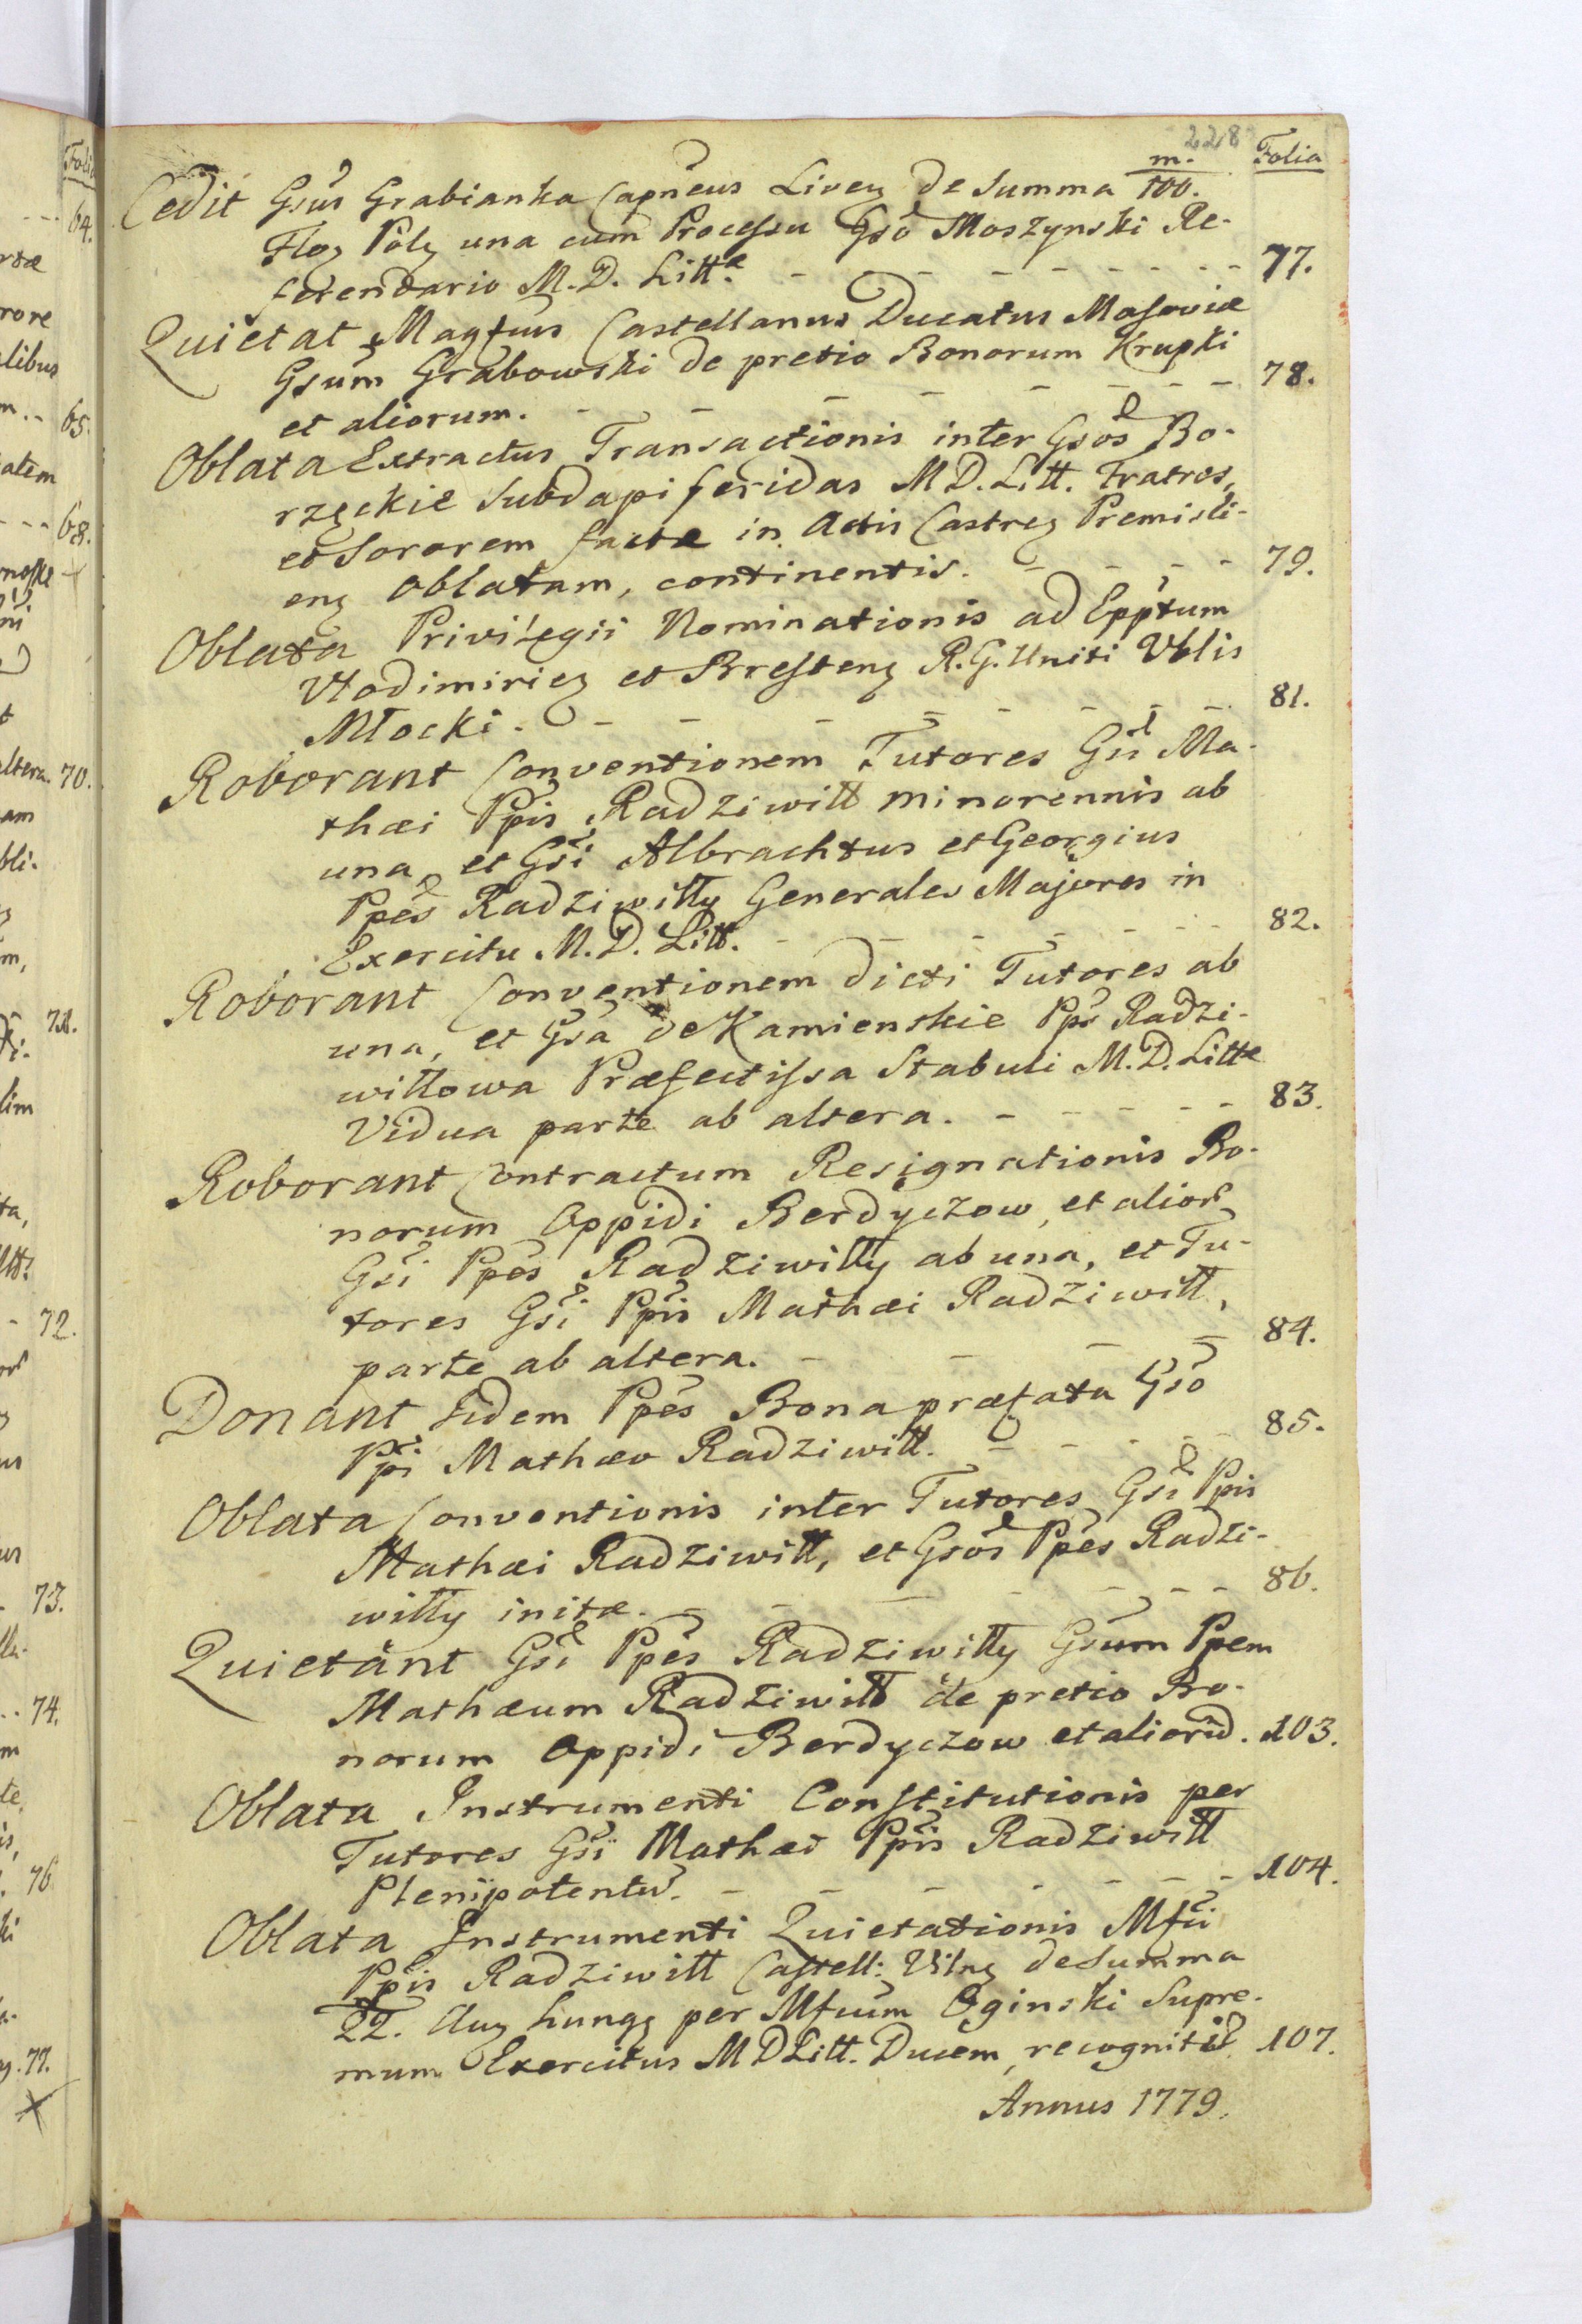 228
m. Folia
Cedit Gsus Grabianka Capneus Liveñ de Summa 100.
Floȝ Polȝ una cum Processu Gso Moszynski Re-
ferendario M. D. Litt. - - - - - - - - 77.
Quietat Magfcus Castellanus Ducatus Masoviæ
Gsum Grabowski de pretio Bonorum Krupki
et aliorum. - - - - - - - - 78.
Oblata Extractus Transactionis inter Gsos Bo-
rzęckie Subdapiferidas M D. Litt. Fratres,
et Sororem factæ in Actis Castreȝ Premisli-
enȝ oblatam, continentis. - - - - 79.
Oblata Privilegii Nominationis ad Epptum
Vlodimirieȝ et Bresteng R. G. Uniti Vblis
Młocki. - - - - - - - 81.
Roborant Conventionem Tutores Gsi Ma-
thæi Ppis Radziwiłł minorennis ab
una, et Gsi Albrachtus et Georgius
Ppes Radziwiłły Generales Majores in
Exercitu M. D. Litt. - - - - - - 82.
Roborant Conventionem dicti Tutores ab
una, et Gsa de Kamienskie Pps Radzi-
wiłłowa Præfectissa Stabuli M. D. Litte
Vidua parte ab altera. - - - - - 83.
Roborant Contractum Resignationis Bo-
norum Oppidi Berdyczow, et alior
Gsi Ppes Radziwiłły ab una, et Tu-
tores Gsi Ppis Mathæi Radziwiłł,
parte ab altera. - - - - 84.
Donant Iidem Ppes Bona præfata Gso
Ppi Mathæo Radziwiłł. - - - - - 85.
Oblata Conventionis inter Tutores Gsi Ppis
Mathæi Radziwiłł, et Gsos Ppes Radzi-
wiłły initæ. - - - - - - - 86.
Quietant Gsi Ppes Radziwiłły Gsum Ppem
Mathæum Radziwiłł de pretio Bo-
norum Oppidi Berdyczow et aliorũ. 103.
Oblata Instrumenti Constitutionis per
Tutores Gsi Mathæi Ppis Radziwiłł
Plenipotentis. - - - - - - - 104.
Oblata Instrumenti Quietationis Mfci
Ppis Radziwiłł Castell: Vilnȝ de Summa
22. Auȝ hungȝ per Mfcum Oginski Supre-
mum Exercitus M D Litt. Ducem, recogniti. 107.
Annus 1779.